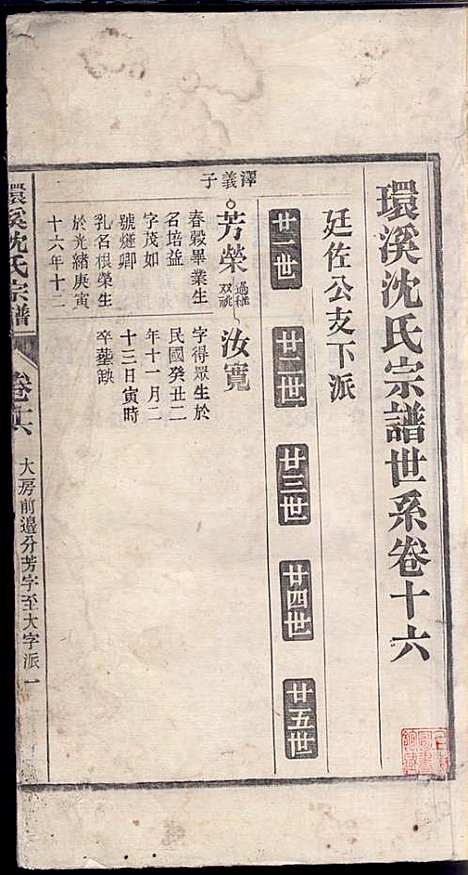 環溪沈氏宗譜世系卷十六
廷佐公支下派
廿一世 廿二世 廿三世 廿四世 廿五世
澤義子
芳榮 過繼双祧 汝寬
春穀畢業生
名培益
字茂如
號燧卿
乳名根榮生
於光緒庚寅
十六年十二
字得眾生於
民國癸丑二
年十一月二
十三日寅時
卒塟缺
環溪沈氏宗譜
卷十六
大房前邉分芳字至大字派一